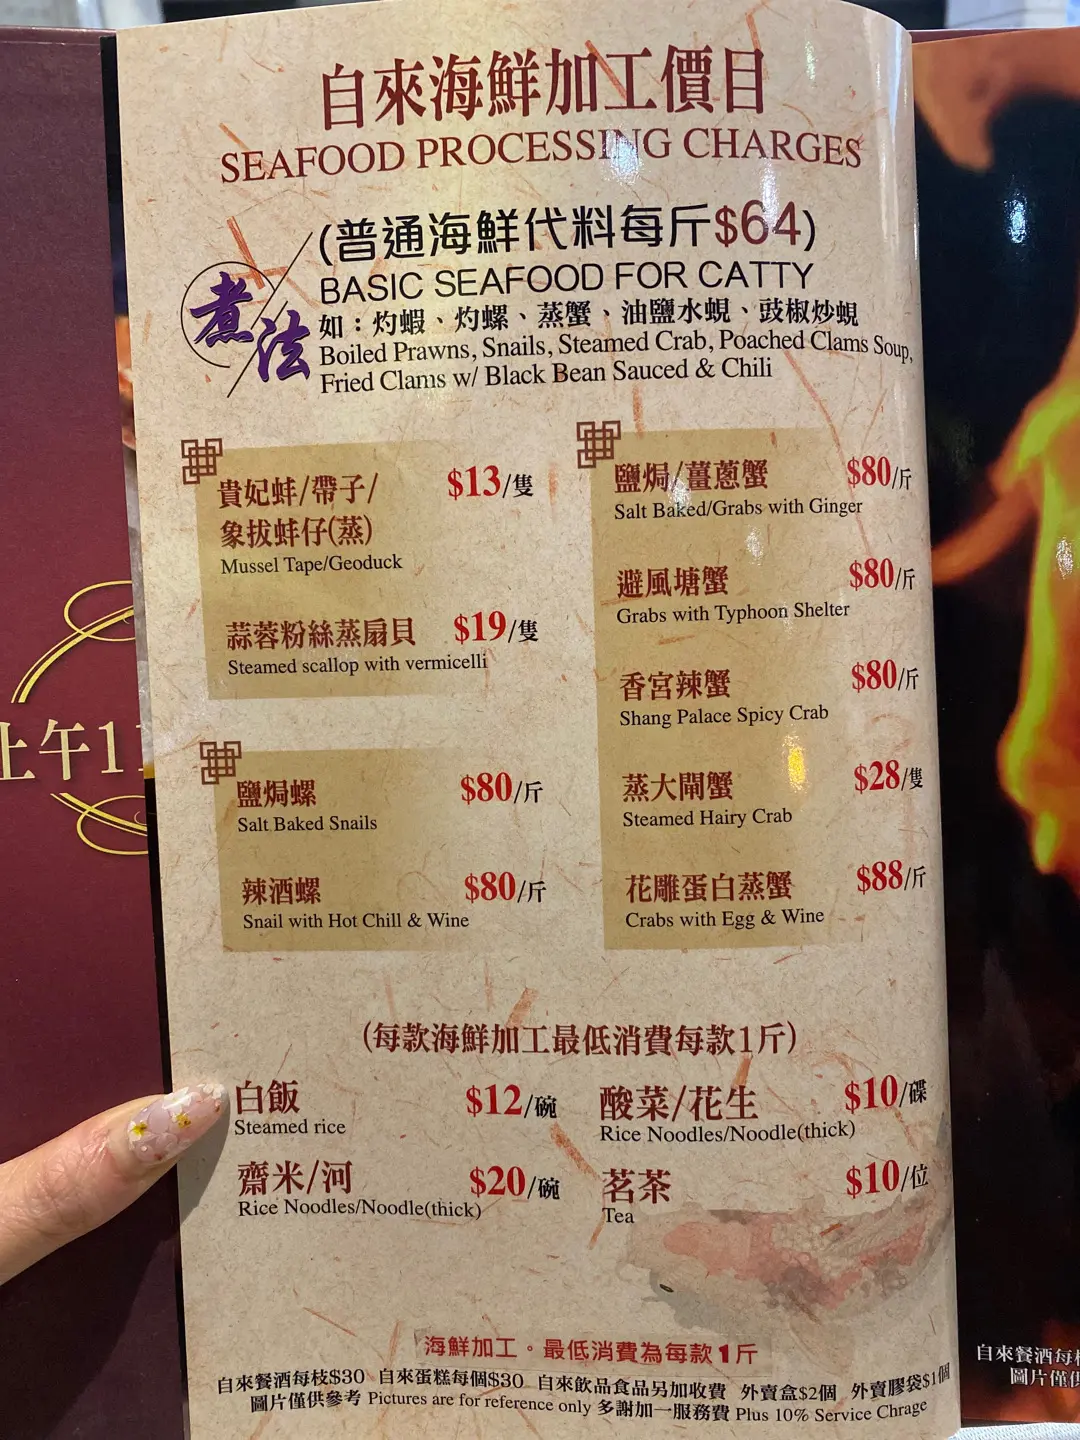 自來海鮮加工價目
SEAFOOD PROCESSING CHARGES
(普通海鮮代料每斤$64)
BASIC SEAFOOD FOR CATTY
煮法
如：灼蝦、灼螺、蒸蟹、油鹽水蜆、豉椒炒蜆
Boiled Prawns, Snails, Steamed Crab, Poached Clams Soup,
Fried Clams w/ Black Bean Sauced & Chili
貴妃蚌/帶子/ $13/隻
象拔蚌仔(蒸)
Mussel Tape/Geoduck
蒜蓉粉絲蒸扇貝 $19/隻
Steamed scallop with vermicelli
鹽焗螺 $80/斤
Salt Baked Snails
辣酒螺 $80/斤
Snail with Hot Chill & Wine
鹽焗/薑蔥蟹 $80/斤
Salt Baked/Grabs with Ginger
避風塘蟹 $80/斤
Grabs with Typhoon Shelter
香宮辣蟹 $80/斤
Shang Palace Spicy Crab
蒸大閘蟹 $28/隻
Steamed Hairy Crab
花雕蛋白蒸蟹 $88/斤
Crabs with Egg & Wine
(每款海鮮加工最低消費每款1斤)
白飯 $12/碗
Steamed rice
酸菜/花生 $10/碟
Rice Noodles/Noodle(thick)
齋米/河 $20/碗
Rice Noodles/Noodle(thick)
茗茶 $10/位
Tea
海鮮加工。最低消費為每款1斤
自來餐酒每枝$30 自來蛋糕每個$30 自來飲品食品另加收費 外賣盒$2個 外賣膠袋$1個
圖片僅供參考 Pictures are for reference only 多謝加一服務費 Plus 10% Service Chrage
上午11
自來餐酒每
圖片僅